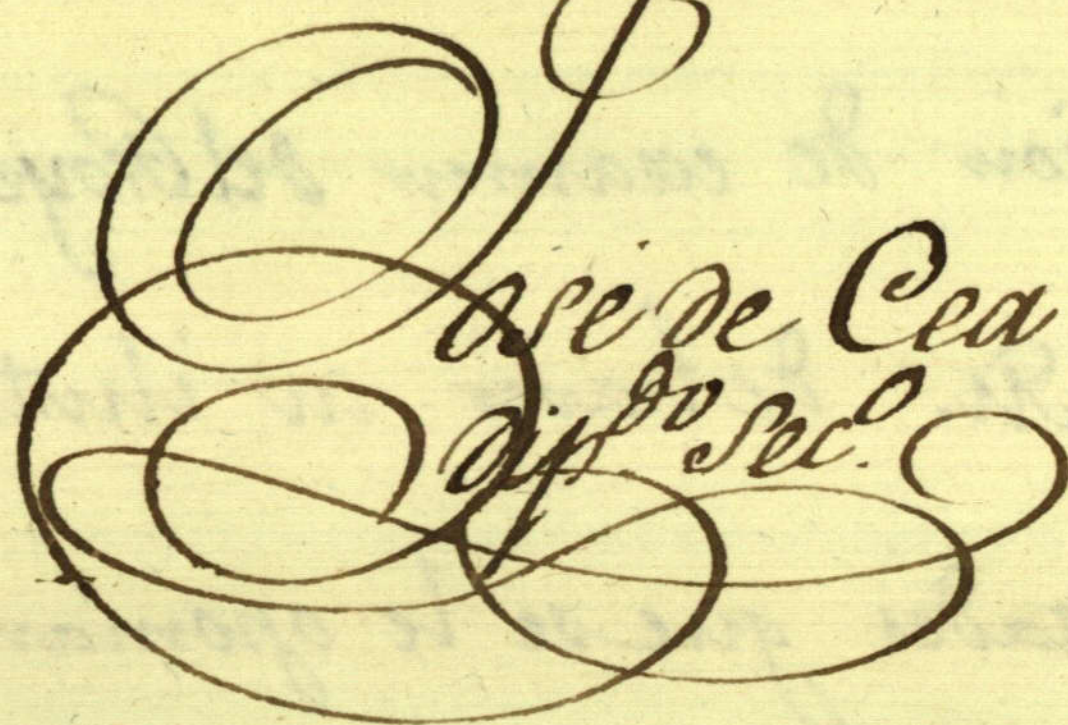 José de Cea
dip.do Sec.o